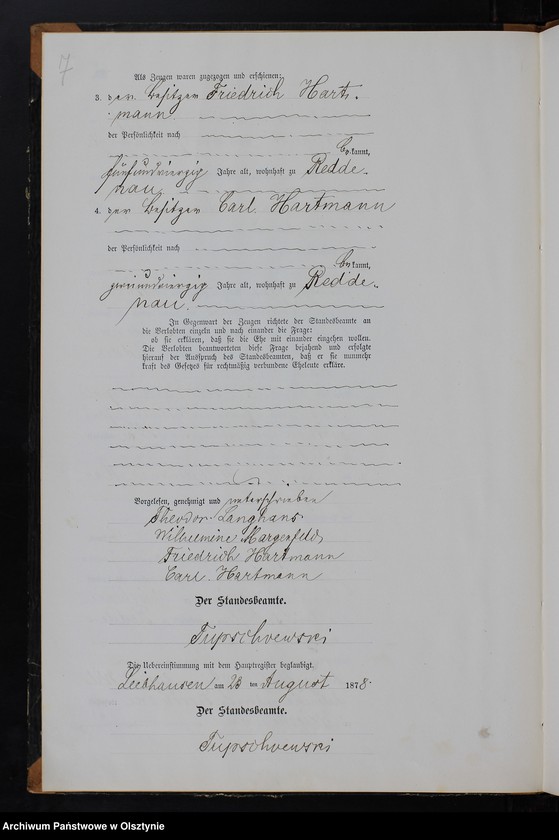 7
Als Zeugen waren zugezogen und erschienen:
3. der Besitzer Friedrich Hart-
mann
der Persönlichkeit nach
be kannt,
fünfundvierzig Jahre alt, wohnhaft zu Redde-
nau
4. der Besitzer Carl Hartmann
der Persönlichkeit nach
be kannt,
zweiundvierzig Jahre alt, wohnhaft zu Redde-
nau.
In Gegenwart der Zeugen richtete der Standesbeamte an
die Verlobten einzeln und nach einander die Frage:
ob sie erklären, daß sie die Ehe mit einander eingehen wollen.
Die Verlobten beantworteten diese Frage bejahend und erfolgte
hierauf der Ausspruch des Standesbeamten, daß er sie nunmehr
kraft des Gesetzes für rechtmäßig verbundene Eheleute erkläre.
Vorgelesen, genehmigt und unterschrieben
Theodor Langhans
Wilhelmine Margenfeld
Friedrich Hartmann
Carl Hartmann
Der Standesbeamte.
Die Uebereinstimmung mit dem Hauptregister beglaubigt.
am 23 ten August 1878.
Der Standesbeamte.
Archiwum Państwowe w Olsztynie